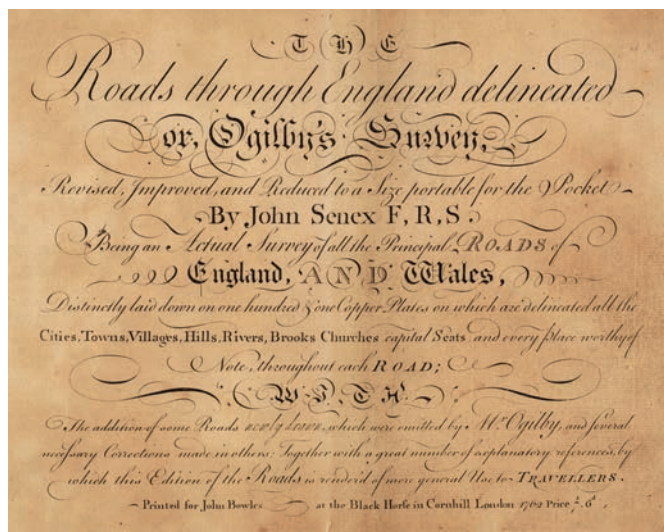 THE
Roads through England delineated
or, Ogilby's Survey,
Revised, Improved, and Reduced to a Size portable for the Pocket
By John Senex F,R,S.
Being an Actual Survey of all the Principal ROADS of
England, AND Wales,
Distinctly laid down on one hundred & one Copper Plates on which are delineated all the
Cities, Towns, Villages, Hills, Rivers, Brooks Churches capital Seats and every place worthy of
Note, throughout each ROAD;
WITH
The addition of some Roads newly drawn, which were omitted by Mr. Ogilby, and several
necessary Corrections made in others: Together with a great number of explanatory references, by
which this Edition of the Roads is render'd of more general Use to TRAVELLERS.
Printed for John Bowles at the Black Horse in Cornhill London 1762 Price